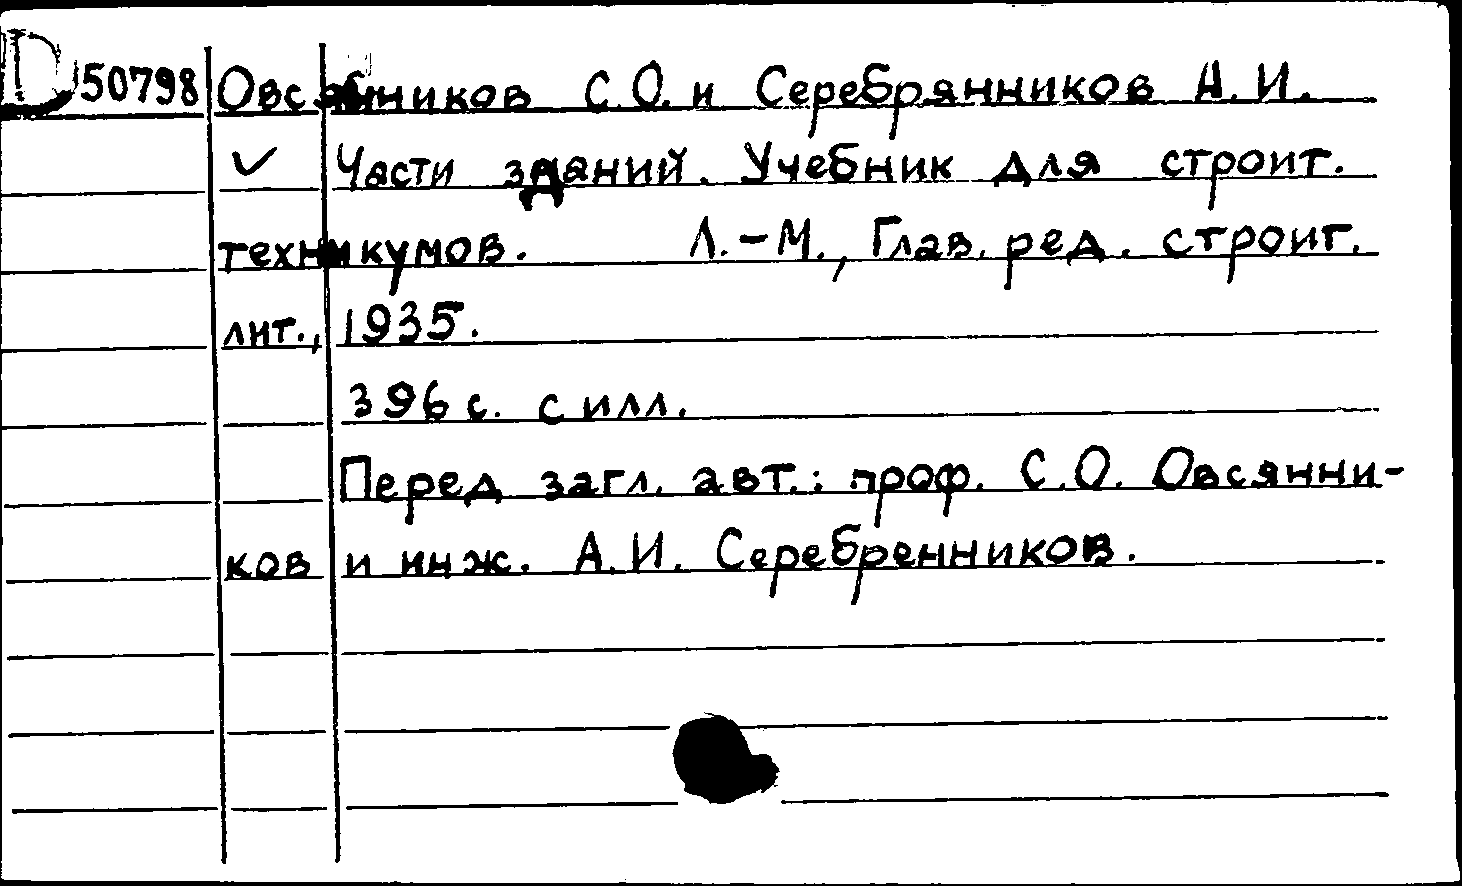 D 50798 Овсянников С.О. и Серебрянников А.И.
✓ Части зданий. Учебник для строит.
техникумов. Л.-М., Глав. ред. строит.
лит., 1935.
396 с. с илл.
Перед загл. авт.: проф. С.О. Овсянни-
ков и инж. А.И. Серебренников.